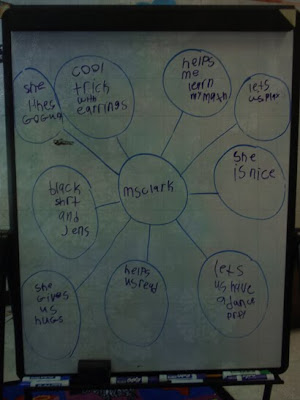 she
likes
cool
trick
with
earrings
helps
me
learn
my math
lets
us play
she
is nice
black
shrt
and
Jens
msclark
she
gives
us
hugs
helps
us read
lets
us have
a dance